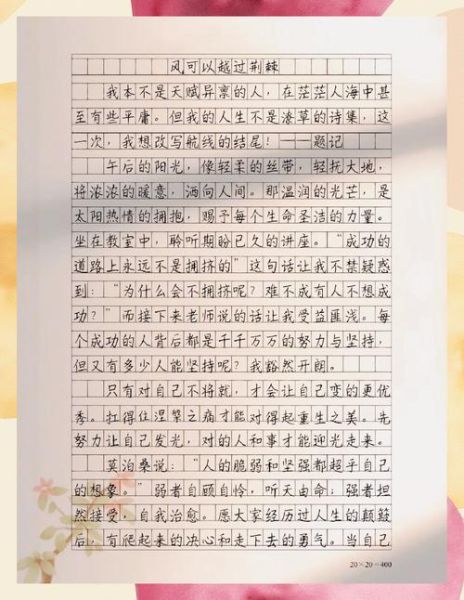 风可以越过荆棘
我本不是天赋异禀的人，在茫茫人海中甚
至有些平庸。但我的人生不是潦草的诗集，这
一次，我想改写航线的结尾！——题记
午后的阳光，像轻柔的丝带，轻抚大地，
将浓浓的暖意，洒向人间。那温润的光芒，是
太阳热情的拥抱，赐予每个生命圣洁的力量。
坐在教室中，聆听期盼已久的讲座。“成功的
道路上永远不是拥挤的”这句话让我不禁疑惑
到：“为什么会不拥挤呢？难不成有人不想成
功？”而接下来老师说的话让我受益匪浅。每
个成功的人背后都是千千万万的努力与坚持，
但又有多少人能坚持呢？我豁然开朗。
只有对自己不将就，才会让自己变的更优
秀。扛得住涅槃之痛才能对得起重生之美。先
努力让自己发光，对的人和事才能迎光走来。
莫泊桑说：“人的脆弱和坚强都超乎自己
的想象。”弱者自顾自怜，听天由命；强者坦
然接受，自我治愈。愿大家经历过人生的颠簸
后，有爬起来的决心和走下去的勇气。当自己
20×20=400